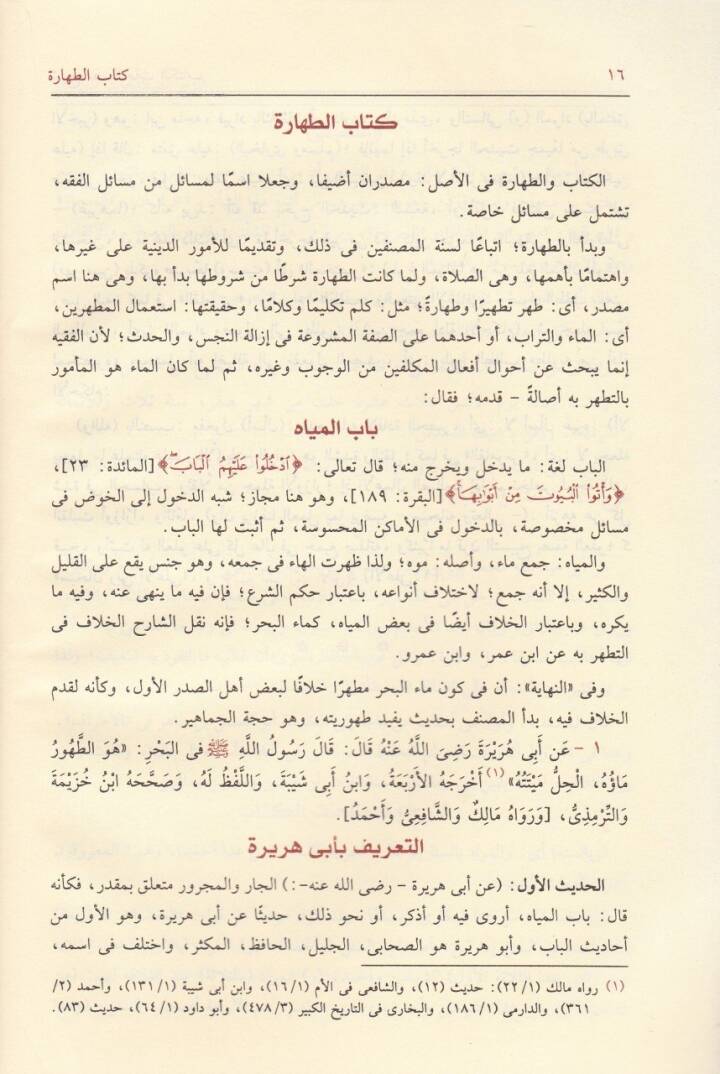 ١٦ كتاب الطهارة
كتاب الطهارة
الكتاب والطهارة فى الأصل: مصدران أضيفا، وجعلا اسمًا لمسائل من مسائل الفقه،
تشتمل على مسائل خاصة.
وبدأ بالطهارة؛ اتباعًا لسنة المصنفين فى ذلك، وتقديمًا للأمور الدينية على غيرها،
واهتمامًا بأهمها، وهى الصلاة، ولما كانت الطهارة شرطًا من شروطها بدأ بها، وهى هنا اسم
مصدر، أى: طهر تطهيرًا وطهارةً؛ مثل: كلم تكليمًا وكلامًا، وحقيقتها: استعمال المطهرين،
أى: الماء والتراب، أو أحدهما على الصفة المشروعة فى إزالة النجس، والحدث؛ لأن الفقيه
إنما يبحث عن أحوال أفعال المكلفين من الوجوب وغيره، ثم لما كان الماء هو المأمور
بالتطهر به أصالةً – قدمه؛ فقال:
باب المياه
الباب لغة: ما يدخل ويخرج منه؛ قال تعالى: ﴿ٱدْخُلُوا۟ عَلَيْهِمُ ٱلْبَابَ ۖ﴾ [المائدة: ٢٣]،
﴿وَأْتُوا۟ ٱلْبُيُوتَ مِنْ أَبْوَٰبِهَا ۚ﴾ [البقرة: ١٨٩]، وهو هنا مجاز؛ شبه الدخول إلى الخوض فى
مسائل مخصوصة، بالدخول فى الأماكن المحسوسة، ثم أثبت لها الباب.
والمياه: جمع ماء، وأصله: موه؛ ولذا ظهرت الهاء فى جمعه، وهو جنس يقع على القليل
والكثير، إلا أنه جمع؛ لاختلاف أنواعه، باعتبار حكم الشرع؛ فإن فيه ما ينهى عنه، وفيه ما
يكره، وباعتبار الخلاف أيضًا فى بعض المياه، كماء البحر؛ فإنه نقل الشارح الخلاف فى
التطهر به عن ابن عمر، وابن عمرو.
وفى «النهاية»: أن فى كون ماء البحر مطهرًا خلافًا لبعض أهل الصدر الأول، وكأنه لقدم
الخلاف فيه، بدأ المصنف بحديث يفيد طهوريته، وهو حجة الجماهير.
١ – عَن أَبِى هُرَيْرَةَ رَضِىَ اللَّهُ عَنْهُ قَالَ: قَالَ رَسُولُ اللَّهِ ﷺ فى البَحْرِ: «هُوَ الطَّهُورُ
مَاؤُهُ، الْحِلُّ مَيْتَتُهُ» (١) أَخْرَجَهُ الأَرْبَعَةُ، وَابنُ أَبى شَيْبَةَ، وَاللَّفْظُ لَهُ، وَصَحَّحَهُ ابْنُ خُزَيْمَةَ
وَالتِّرْمِذِىُّ، [وَرَوَاهُ مَالِكٌ وَالشَّافِعِىُّ وَأَحْمَدُ].
التعريف بأبى هريرة
الحديث الأول: (عن أبى هريرة – رضى الله عنه-:) الجار والمجرور متعلق بمقدر، فكأنه
قال: باب المياه، أروى فيه أو أذكر، أو نحو ذلك، حديثًا عن أبى هريرة، وهو الأول من
أحاديث الباب، وأبو هريرة هو الصحابى، الجليل، الحافظ، المكثر، واختلف فى اسمه،
(١) رواه مالك (٢٢/١): حديث (١٢)، والشافعى فى الأم (١٦/١)، وابن أبى شيبة (١٣١/١)، وأحمد (٢/
٣٦١)، والدارمى (١٨٦/١)، والبخارى فى التاريخ الكبير (٤٧٨/٣)، وأبو داود (٦٤/١)، حديث (٨٣).